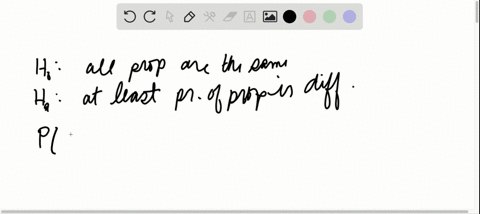 H₀: all prop are the same
Hₐ: at least pr. of prop is diff.
P(